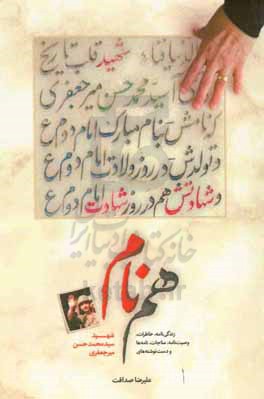 شهید قلب تاریخ
سید محمد حسن میرجعفری
که نامش بنام مبارک امام دوم ع
و تولدش در روز ولادت امام دوم ع
و شهادتش هم در روز شهادت امام دوم ع
هم نام
شهید
سیدمحمدحسن
میرجعفری
زندگی‌نامه، خاطرات،
وصیت‌نامه، مناجات، نامه‌ها
و دست‌نوشته‌های
علیرضا صداقت